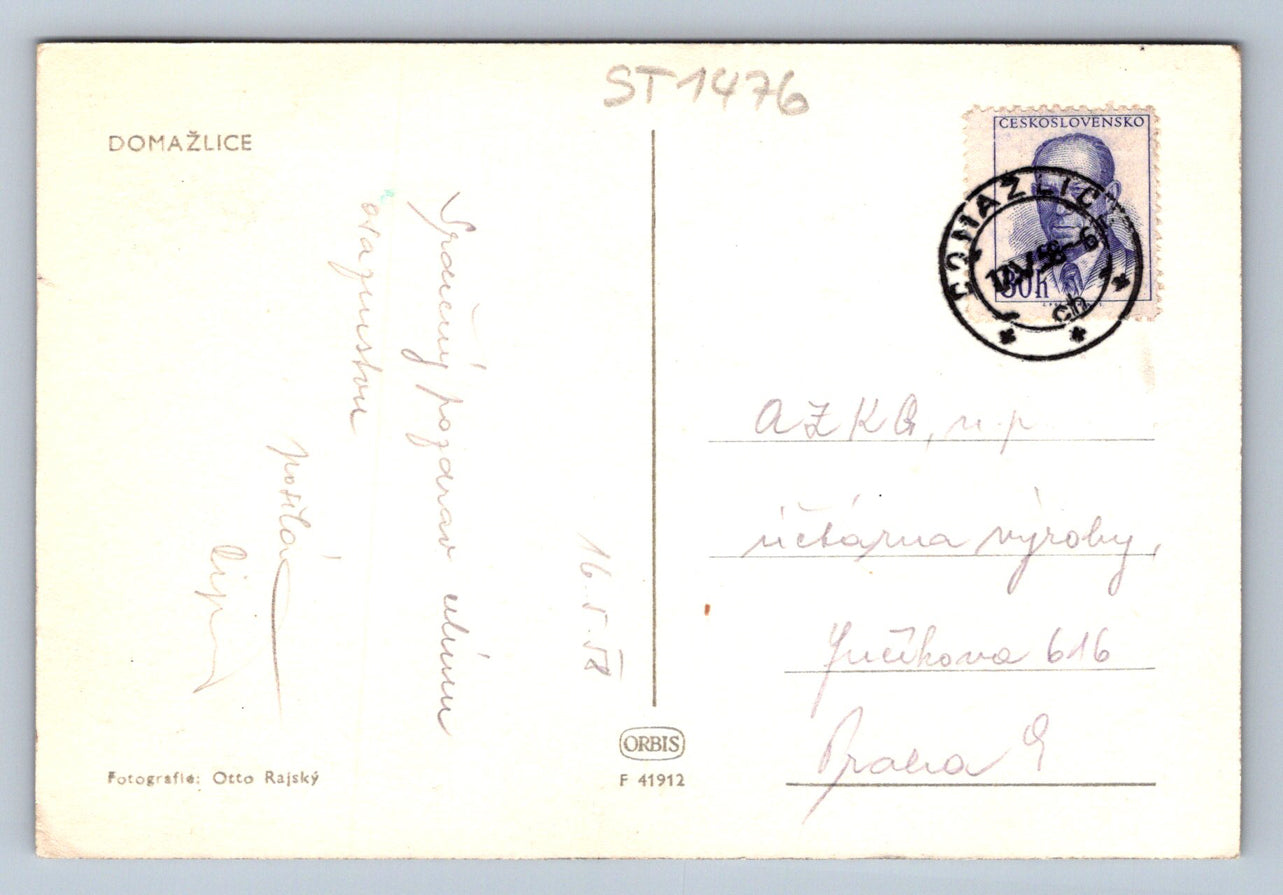 ST1476
DOMAŽLICE
ČESKOSLOVENSKO
30h
DOMAŽLICE
17.V.58-6
ch
16.5.58
Srdečný pozdrav všem
posílá
AZKG, n.p.
účtárna výroby,
Fučíkova 616
Praha 9
Fotografie: Otto Rajský
ORBIS
F 41912